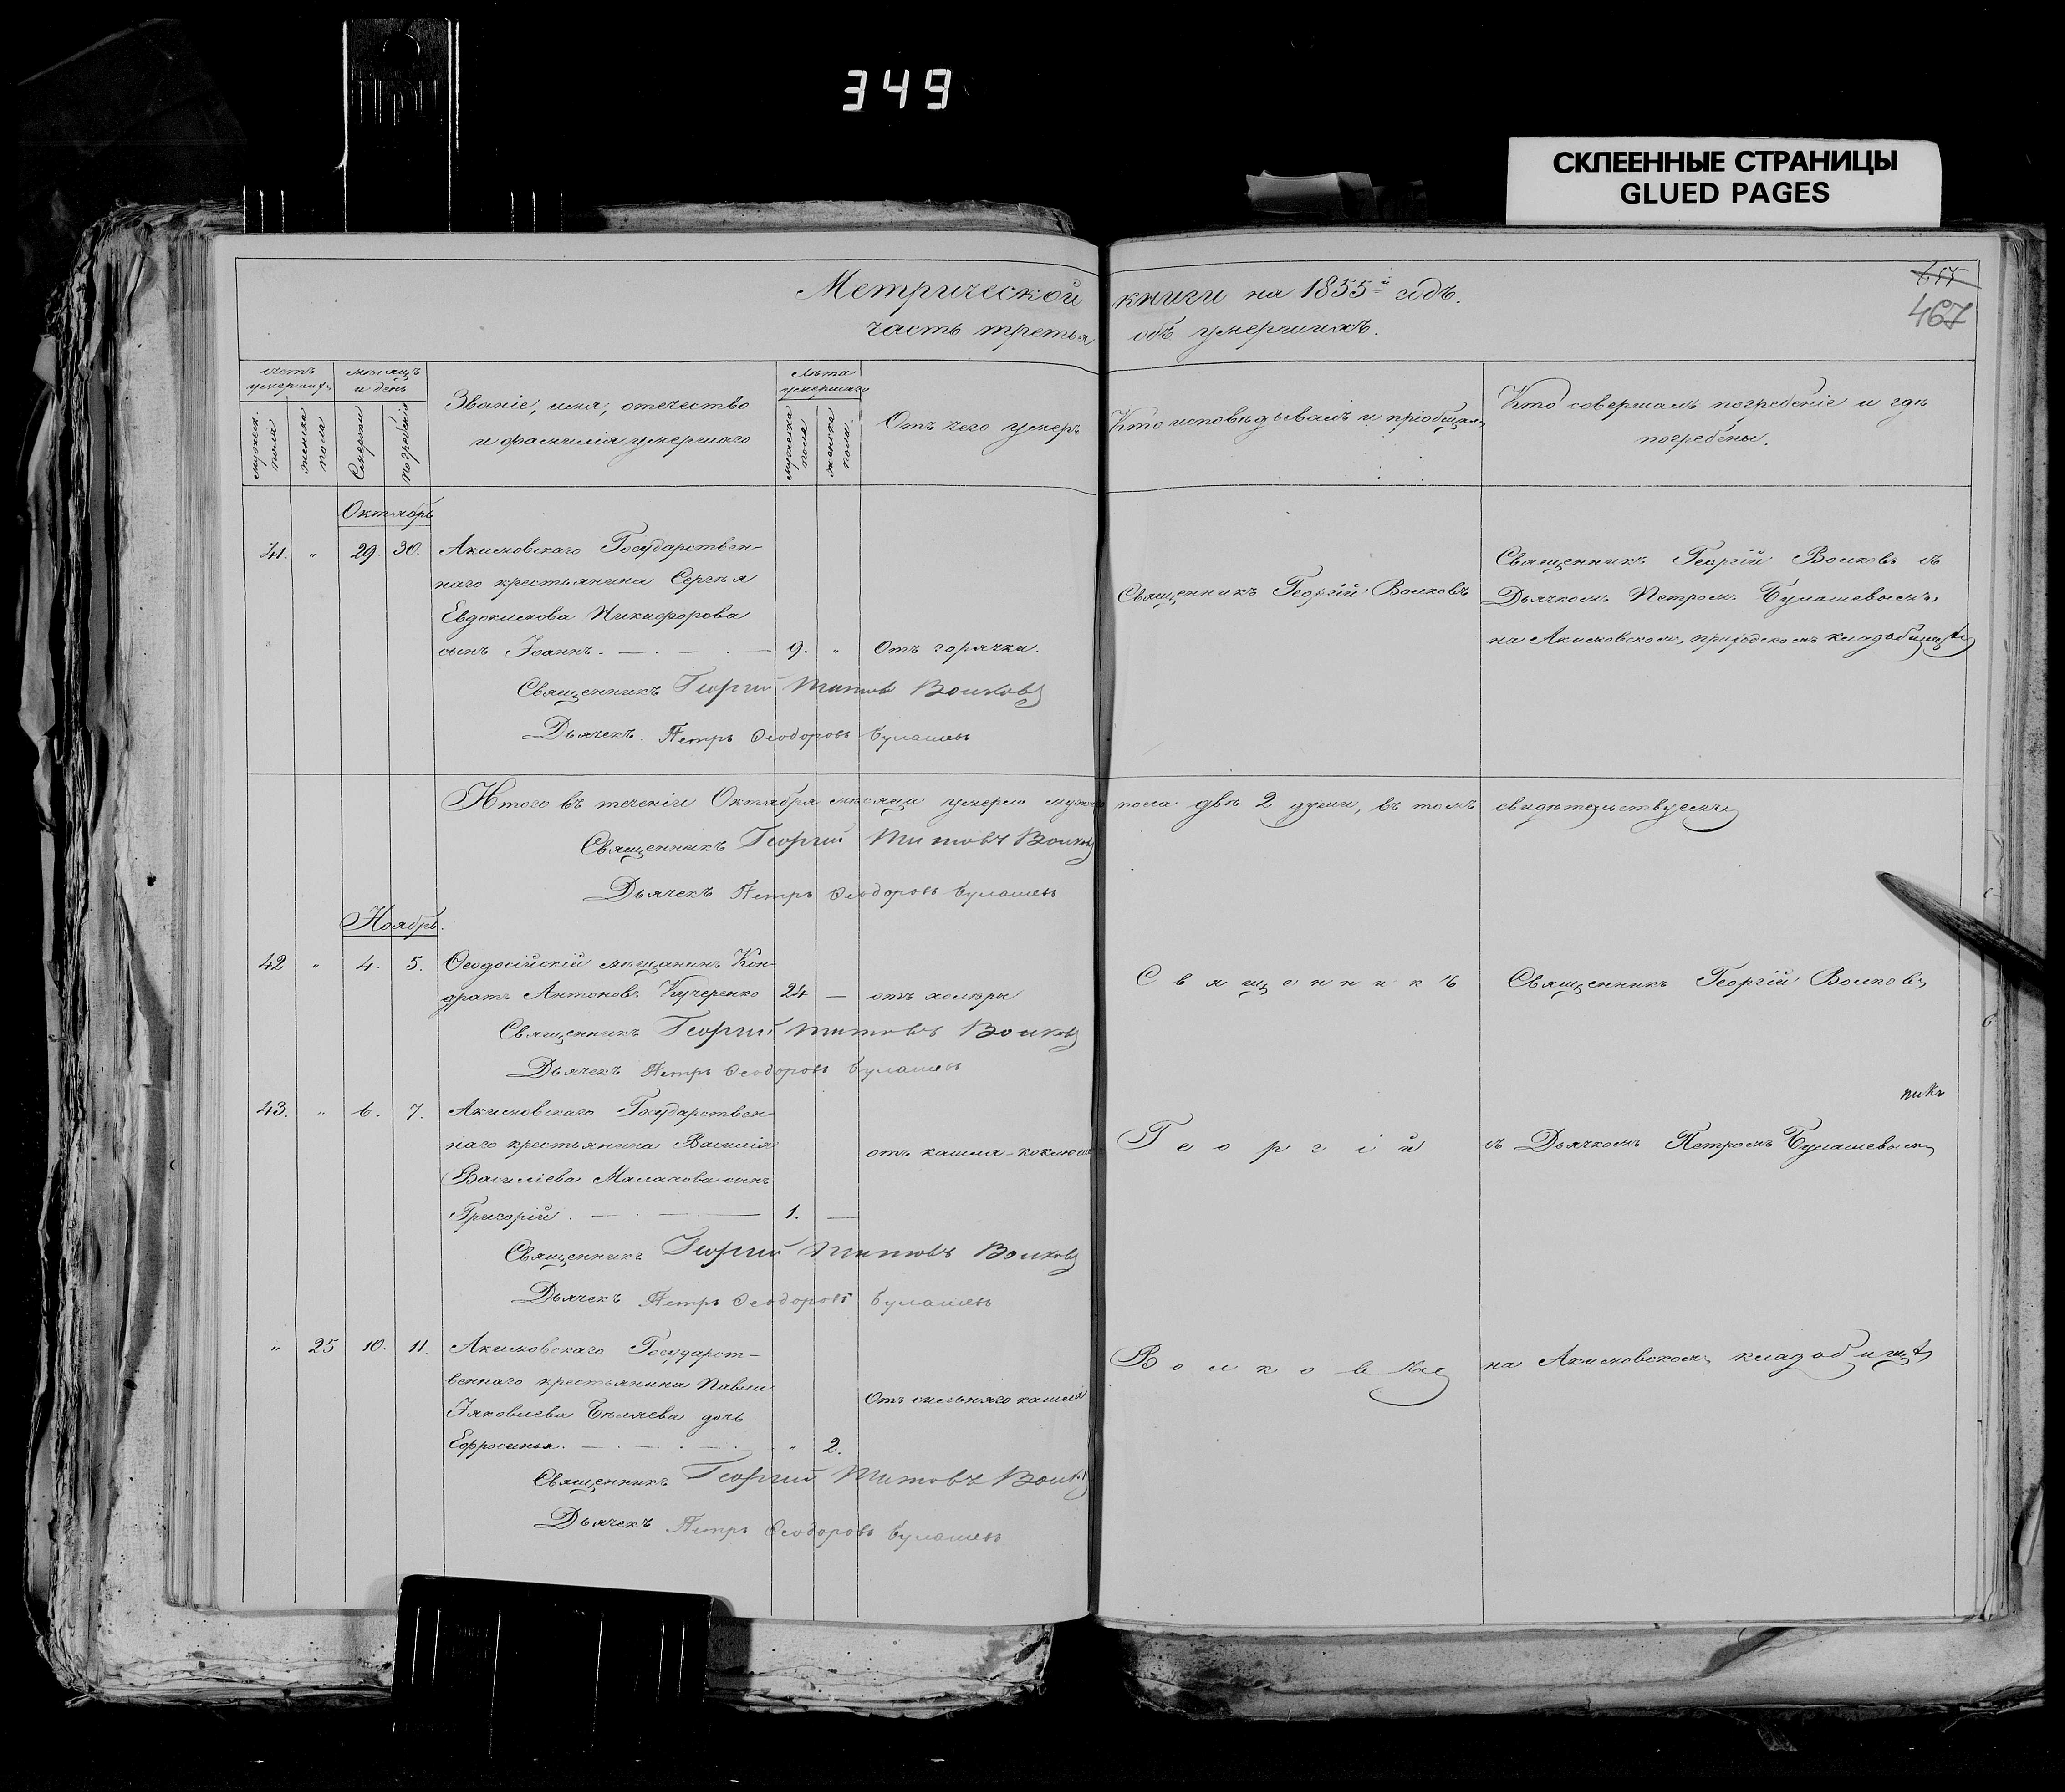 349
СКЛЕЕННЫЕ СТРАНИЦЫ
GLUED PAGES
467
Метрической книги на 1855й годъ.
часть третья объ умершихъ.
Счетъ умершихъ
мужеска пола
женска пола
мѣсяцъ и день
Смерти
погребенія
Званіе, имя, отечество
и фамилія умершаго
Лѣта умершаго
мужеска пола
женска пола
Отъ чего умеръ
Кто исповѣдывалъ и пріобщалъ
Кто совершалъ погребеніе и гдѣ
погребены.
Октябрь
41. " 29. 30. Акимовскаго Государствен-
наго крестьянина Сергѣя
Евдокимова Никифорова
сынъ Іоаннъ. 9. " Отъ горячки.
Священникъ Георгій Волковъ
Священникъ Георгій Волковъ съ
Дьячкомъ Петромъ Булашевымъ,
на Акимовскомъ приходскомъ кладбищѣ
Священникъ Георгий Титовъ Волковъ
Дьячекъ Петръ Ѳеодоровъ Булашевъ
Итого въ теченіи Октября мѣсяца умерло мужеска пола двѣ 2 души, въ томъ свидѣтельствуемъ
Священникъ Георгий Титовъ Волковъ
Дьячекъ Петръ Ѳеодоровъ Булашевъ
Ноябрь.
42 " 4. 5. Ѳеодосійскій мѣщанинъ Кон-
дратъ Антоновъ Кучеренко 24 — отъ холеры
Священникъ
Священникъ Георгій Волковъ
Священникъ Георгий Титовъ Волковъ
Дьячекъ Петръ Ѳеодоровъ Булашевъ
43. " 6. 7. Акимовскаго Государствен-
наго крестьянина Василія
Васильева Малахова сынъ
Григорій. 1. —
отъ кашля-коклюша
Георгій
съ Дьячкомъ Петромъ Булашевымъ
Священникъ Георгий Титовъ Волковъ
Дьячекъ Петръ Ѳеодоровъ Булашевъ
" 25 10. 11. Акимовскаго Государст-
веннаго крестьянина Павла
Іяковлева Бѣляева дочь
Ефросинья. " 2.
Отъ сильнаго кашля
Волковъ
на Акимовскомъ кладбищѣ
Священникъ Георгий Титовъ Волковъ
Дьячекъ Петръ Ѳеодоровъ Булашевъ